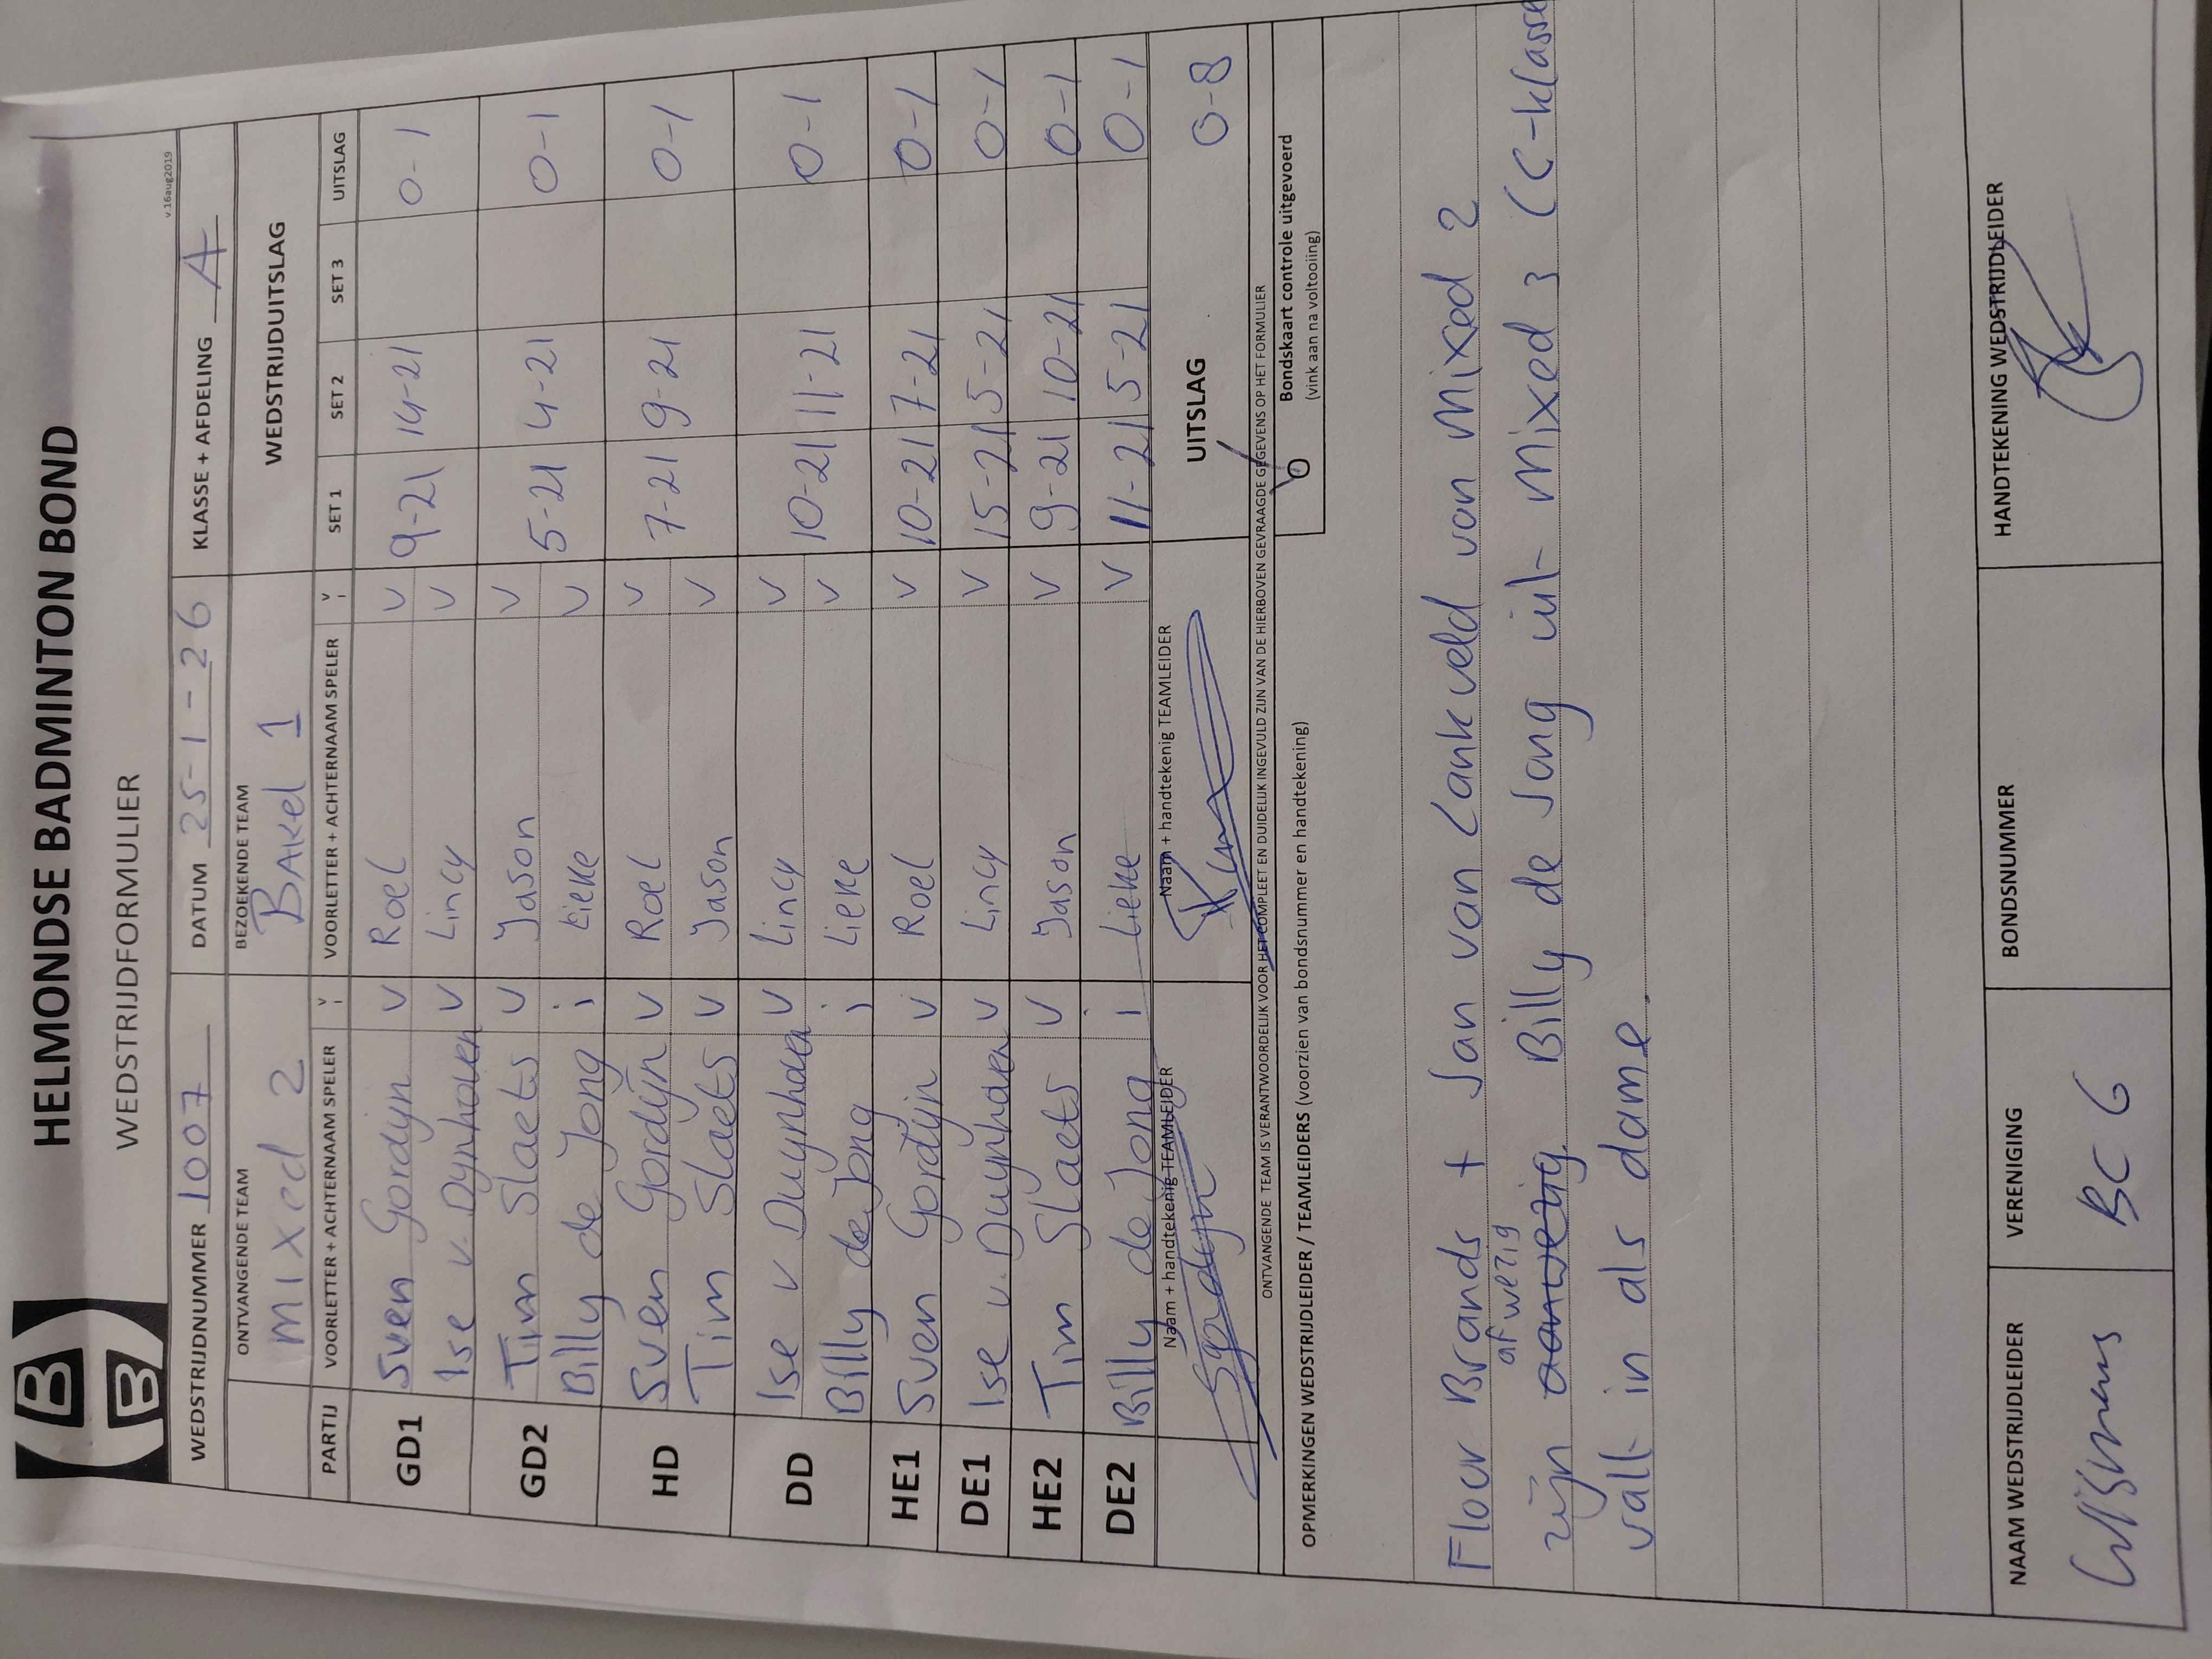 HELMONDSE BADMINTON BOND
WEDSTRIJDFORMULIER
v.16aug2019
WEDSTRIJDNUMMER 1007 DATUM 25-1-26 KLASSE + AFDELING A
ONTVANGENDE TEAM BEZOEKENDE TEAM WEDSTRIJDUITSLAG
mixed 2 BAKEL 1
PARTIJ VOORLETTER + ACHTERNAAM SPELER V i VOORLETTER + ACHTERNAAM SPELER V i SET 1 SET 2 SET 3 UITSLAG
GD1 Sven Gordijn V Roel V 9-21 14-21 0-1
Ise v. Dynhoven V Lincy V
GD2 Tim Slaets V Jason V 5-21 4-21 0-1
Billy de Jong i Lieke V
HD Sven Gordijn V Roel V 7-21 9-21 0-1
Tim Slaets V Jason V
DD Ise v Duynhoven V Lincy V 10-21 11-21 0-1
Billy de Jong i Lieke V
HE1 Sven Gordijn V Roel V 10-21 7-21 0-1
DE1 Ise v. Duynhoven V Lincy V 15-21 5-21 0-1
HE2 Tim Slaets V Jason V 9-21 10-21 0-1
DE2 Billy de Jong i Lieke V 11-21 5-21 0-1
Naam + handtekenig TEAMLEIDER Naam + handtekenig TEAMLEIDER UITSLAG 0-8
SGordijn
ONTVANGENDE TEAM IS VERANTWOORDELIJK VOOR HET COMPLEET EN DUIDELIJK INGEVULD ZIJN VAN DE HIERBOVEN GEVRAAGDE GEGEVENS OP HET FORMULIER
OPMERKINGEN WEDSTRIJDLEIDER / TEAMLEIDERS (voorzien van bondsnummer en handtekening) O Bondskaart controle uitgevoerd
(vink aan na voltooiing)
Floor Brands + Jan van Lankveld van mixed 2
afwezig
zijn aanwezig. Billy de Jong uit mixed 3 (C-klasse
valt in als dame.
NAAM WEDSTRIJDLEIDER VERENIGING BONDSNUMMER HANDTEKENING WEDSTRIJDLEIDER
BC G